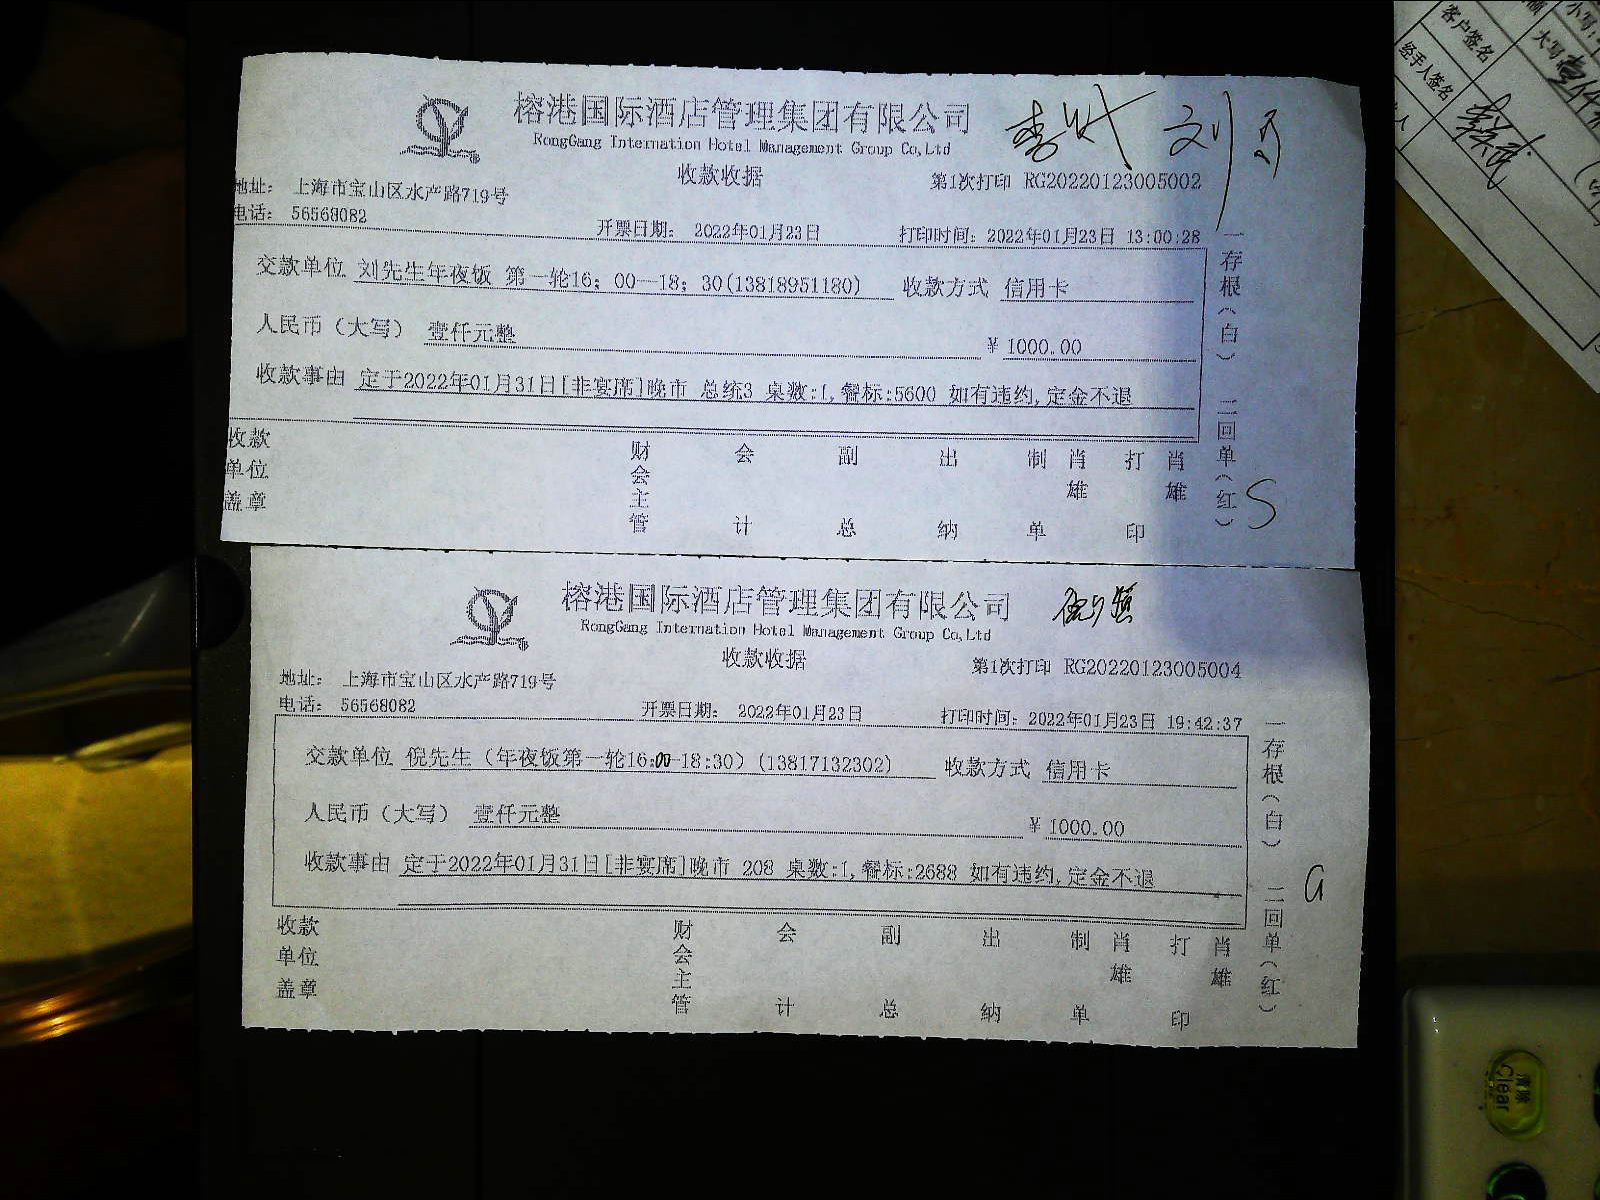 榕港国际酒店管理集团有限公司
RongGang Internation Hotel Management Group Co,Ltd
收款收据
地址： 上海市宝山区水产路719号
第1次打印 RG20220123005002
电话： 56568082
开票日期： 2022年01月23日
打印时间：2022年01月23日 13:00:28
交款单位 刘先生年夜饭 第一轮16；00—18；30(13818951180) 收款方式 信用卡
人民币（大写） 壹仟元整 ¥ 1000.00
收款事由 定于2022年01月31日[非宴席]晚市 总统3 桌数:1,餐标:5600 如有违约,定金不退
收款单位盖章 财会主管 会计 副总 出纳 制单 肖雄 打印 肖雄
一存根（白） 二回单（红）
S
榕港国际酒店管理集团有限公司
RongGang Internation Hotel Management Group Co,Ltd
收款收据
地址： 上海市宝山区水产路719号
第1次打印 RG20220123005004
电话： 56568082
开票日期： 2022年01月23日
打印时间：2022年01月23日 19:42:37
交款单位 倪先生（年夜饭第一轮16:00-18:30）(13817132302) 收款方式 信用卡
人民币（大写） 壹仟元整 ¥ 1000.00
收款事由 定于2022年01月31日[非宴席]晚市 208 桌数:1,餐标:2688 如有违约,定金不退
收款单位盖章 财会主管 会计 副总 出纳 制单 肖雄 打印 肖雄
一存根（白） 二回单（红）
G
小写:
大写
客户签名
经手人签名
清除
Clear